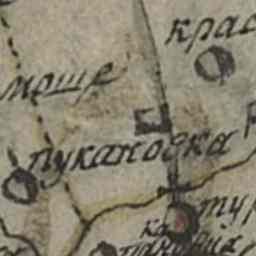 крас
моще
пукановка
тур
ка